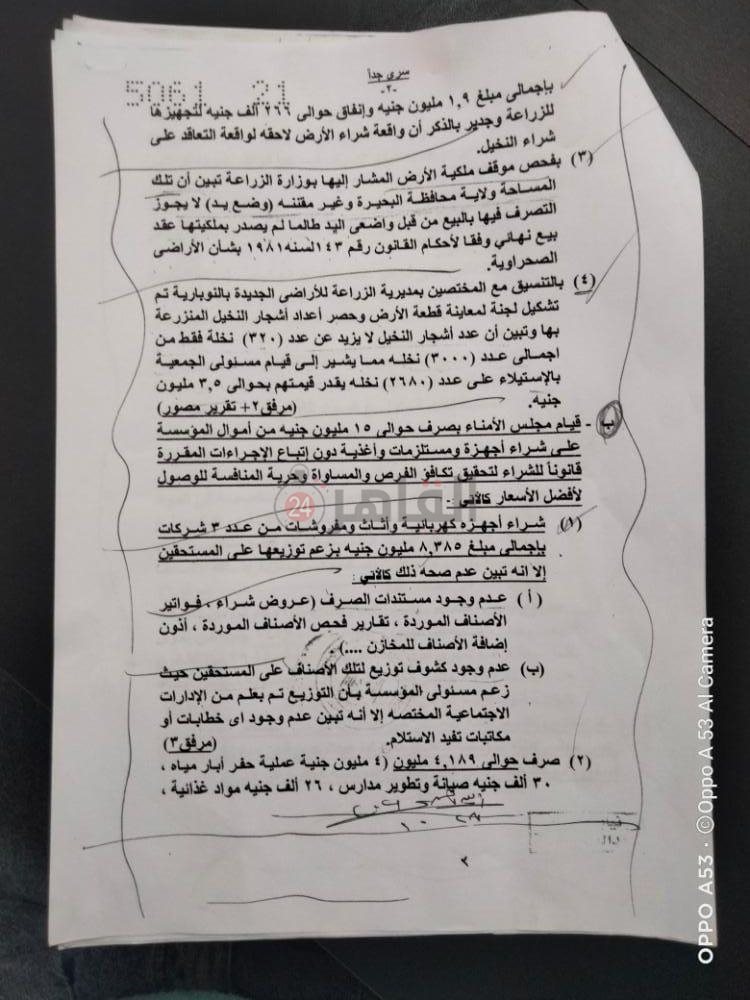 سرى جداً
-٢-
5061 21
بإجمالى مبلغ ١,٩ مليون جنيه وإنفاق حوالى ٢٦٦ ألف جنيه لتجهيزها
للزراعة وجدير بالذكر أن واقعة شراء الأرض لاحقه لواقعة التعاقد على
شراء النخيل.
(٣) بفحص موقف ملكية الأرض المشار إليها بوزارة الزراعة تبين أن تلك
المساحة ولاية محافظة البحيرة وغير مقتنه (وضع يد) لا يجوز
التصرف فيها بالبيع من قبل واضعى اليد طالما لم يصدر بملكيتها عقد
بيع نهائي وفقا لأحكام القانون رقم ١٤٣ لسنه ١٩٨١ بشأن الأراضى
الصحراوية.
(٤) بالتنسيق مع المختصين بمديرية الزراعة للأراضى الجديدة بالنوبارية تم
تشكيل لجنة لمعاينة قطعة الأرض وحصر أعداد أشجار النخيل المنزرعة
بها وتبين أن عدد أشجار النخيل لا يزيد عن عدد (٣٢٠) نخلة فقط من
اجمالى عدد (٣٠٠٠) نخله مما يشير إلى قيام مسئولى الجمعية
بالإستيلاء على عدد (٢٦٨٠) نخله يقدر قيمتهم بحوالى ٣,٥ مليون
جنيه. (مرفق٢+ تقرير مصور)
ب - قيام مجلس الأمناء بصرف حوالى ١٥ مليون جنيه من أموال المؤسسة
على شراء أجهزة ومستلزمات وأغذية دون إتباع الإجراءات المقررة
قانوناً للشراء لتحقيق تكافؤ الفرص والمساواة وحرية المنافسة للوصول
لأفضل الأسعار كالأتي :-
القاهرة 24
(١) شراء أجهزه كهربائية وأثاث ومفروشات من عدد ٣ شركات
بإجمالى مبلغ ٨,٣٨٥ مليون جنيه بزعم توزيعها على المستحقين
إلا انه تبين عدم صحه ذلك كالأتي :
(أ) عدم وجود مستندات الصرف (عروض شراء ، فواتير
الأصناف الموردة ، تقارير فحص الأصناف الموردة ، أذون
إضافة الأصناف للمخازن ....) .
(ب) عدم وجود كشوف توزيع لتلك الأصناف على المستحقين حيث
زعم مسئولى المؤسسة بأن التوزيع تم بعلم من الإدارات
الاجتماعية المختصه إلا أنه تبين عدم وجود اى خطابات أو
مكاتبات تفيد الاستلام. (مرفق٣)
(٢) صرف حوالى ٤,١٨٩ مليون (٤ مليون جنية عملية حفر أبار مياه ،
٣٠ ألف جنيه صيانة وتطوير مدارس ، ٢٦ ألف جنيه مواد غذائية ،
٢
OPPO A53 · ©Oppo A 53 AI Camera